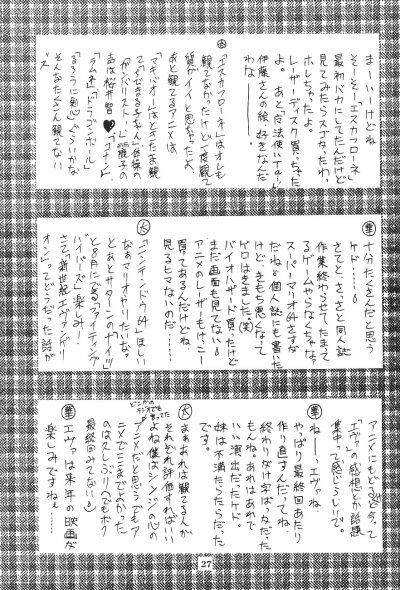 まーいーけどね
そーそー「エスカフローネ」
最初バカにしてたんだけど
見てみたらスゴかったわ、
ホレちゃったよ。
レーザーディスク買っちゃった
よ。あと「魔法使いTai!」
伊藤さんの絵、好きなんだ
わねー。
「エスカフローネ」はオレも
観てなかったけど一度観て
質がイイと思ったなぁ
あと観てるアニメは
「マキバオー」はときたま観
て
声は桜井智♥「コナン」
「ラムネ」「ドラゴンボール」
「るろうに剣心」ぐらいかな
そんなたくさん観てない
ズ
十分たくさんだと思う
ケド…
さてと、さっさと同人誌
作業終わらせてたまって
るゲームやらなくちゃな
スーパーマリオ64さすが
だね。個人誌にも書いた
けど、きもち悪くなって
ゲロはきました。(笑)
バイオハザード買ったけど
まだ画面も見てない
アニメのレーザーもけっこー
買ってあるんだけどね、
見るヒマないのだ……
「ニンテンドウ64」ほしい
なぁマリオやりたいな。
とあとサターンの「ナイツ」
と8日にでる「ファイティング
バイパーズ」楽しみ!
さて「新世紀エヴァンゲリ
オン」ってどうだった話が
アニメにもどるけど今って
「エヴァ」の感想とか話題
集中って感じらしいで。
ねーっエヴァね
やっぱり最終回あたり
作り直すんだってね。
終わりなげやりぱなだった
もんね。あれはあれで
いい演出だったケド。
妹は不満たらたらだった
です。
まぁあれは観てる人が
それぞれ評価すればいい
よね僕はシンジの心の
アニメだと思うでもア
ニメでここまでよかった
のは久しぶり(でもボク
最終回みてない。)
エヴァは来年の映画が
楽しみですねぇ……
27